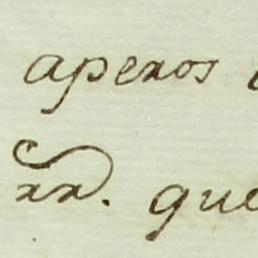 aperos
xx. que